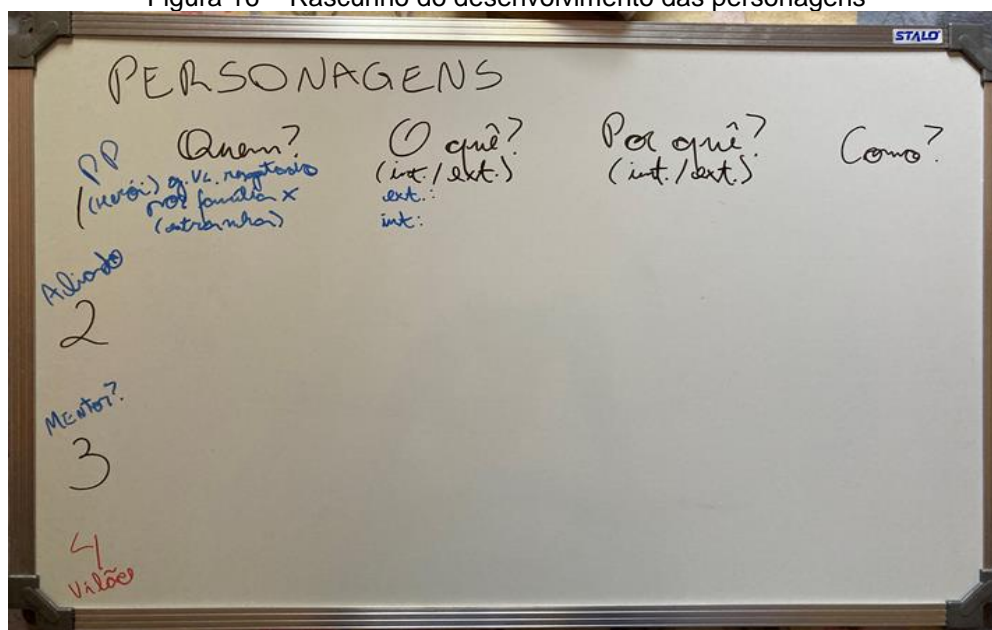 Figura 16 – Rascunho do desenvolvimento das personagens
STALO
PERSONAGENS
Quem? O quê? Por quê? Como?
(int./ext.) (int./ext.)
PP
1 (herói) resgatado
por família x
(estranha)
ext.:
int:
Aliado
2
Mentor?
3
4
Vilões